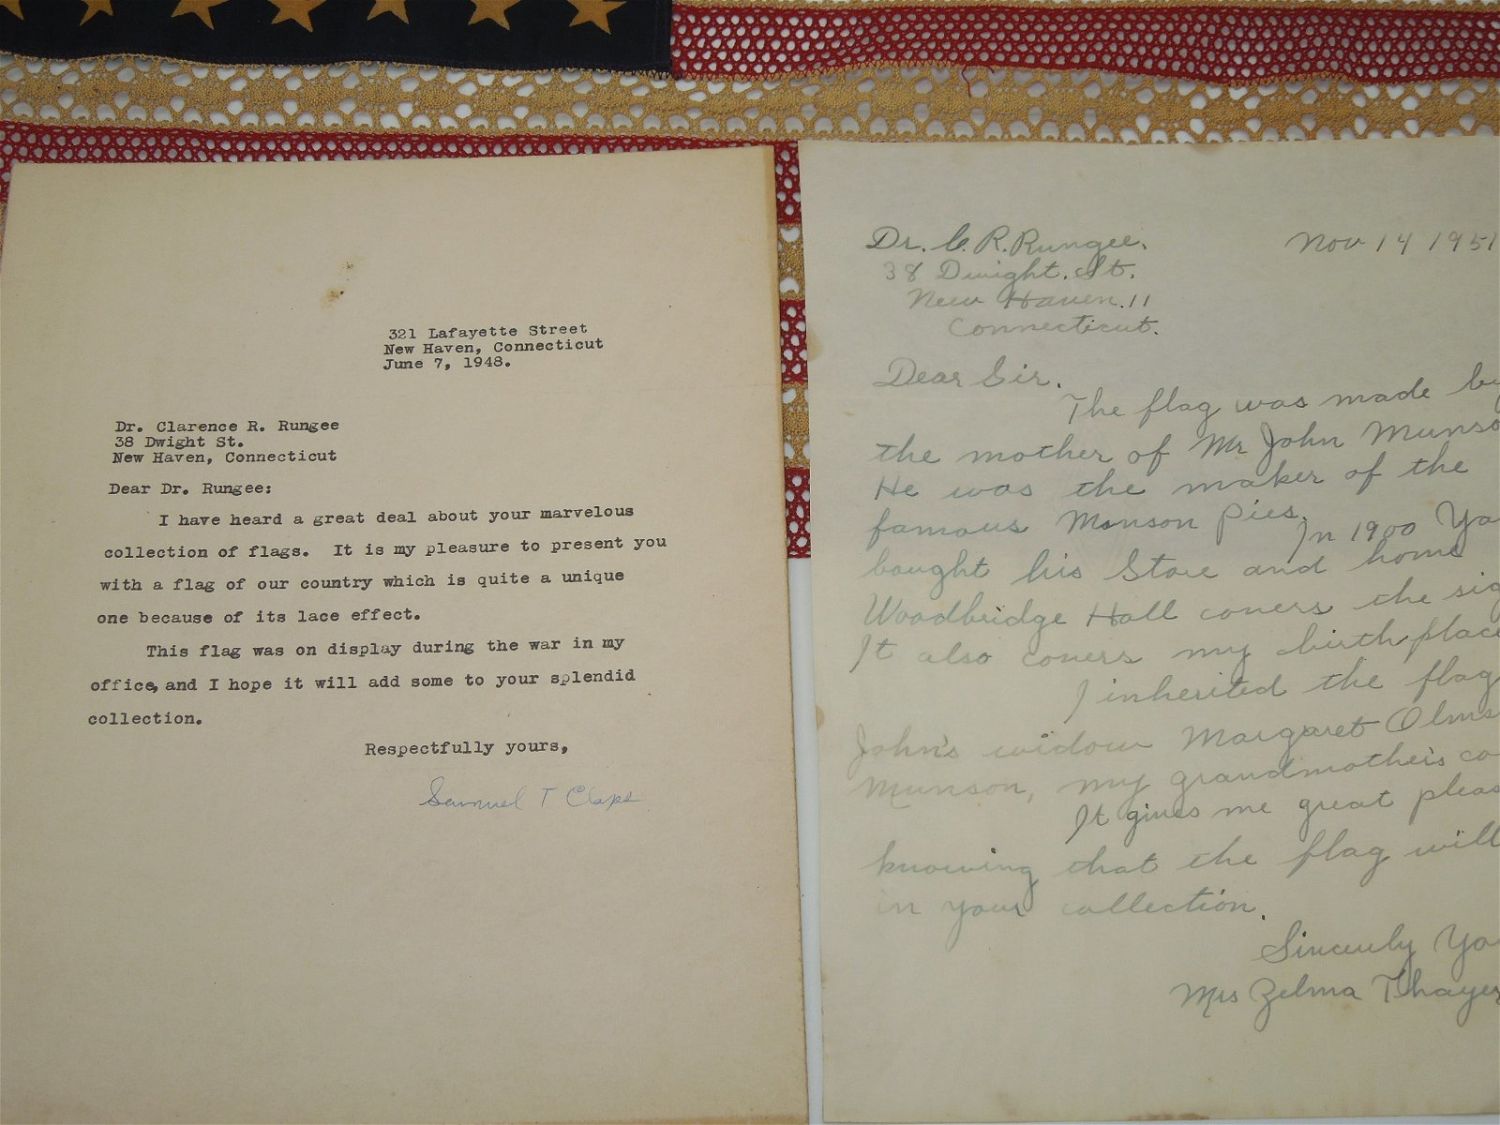 321 Lafayette Street
New Haven, Connecticut
June 7, 1948.
Dr. Clarence R. Rungee
38 Dwight St.
New Haven, Connecticut
Dear Dr. Rungee:
I have heard a great deal about your marvelous
collection of flags. It is my pleasure to present you
with a flag of our country which is quite a unique
one because of its lace effect.
This flag was on display during the war in my
office, and I hope it will add some to your splendid
collection.
Respectfully yours,
Samuel T
Dr. C. R. Rungee. Nov 14 1951
38 Dwight. St.
New Haven. 11
Connecticut.
Dear Sir.
The flag was made by
the mother of Mr John Munso
He was the maker of the
famous Monson pies. In 1900 Ya
bought his Store and home
Woodbridge Hall covers the sig
It also covers my birthplace
I inherited the flag
John's widow Margaret Olms
Munson, my grandmother's co
It gives me great pleas
knowing that the flag will
in your collection.
Sincerely Yo
Mrs Zelma Thayer